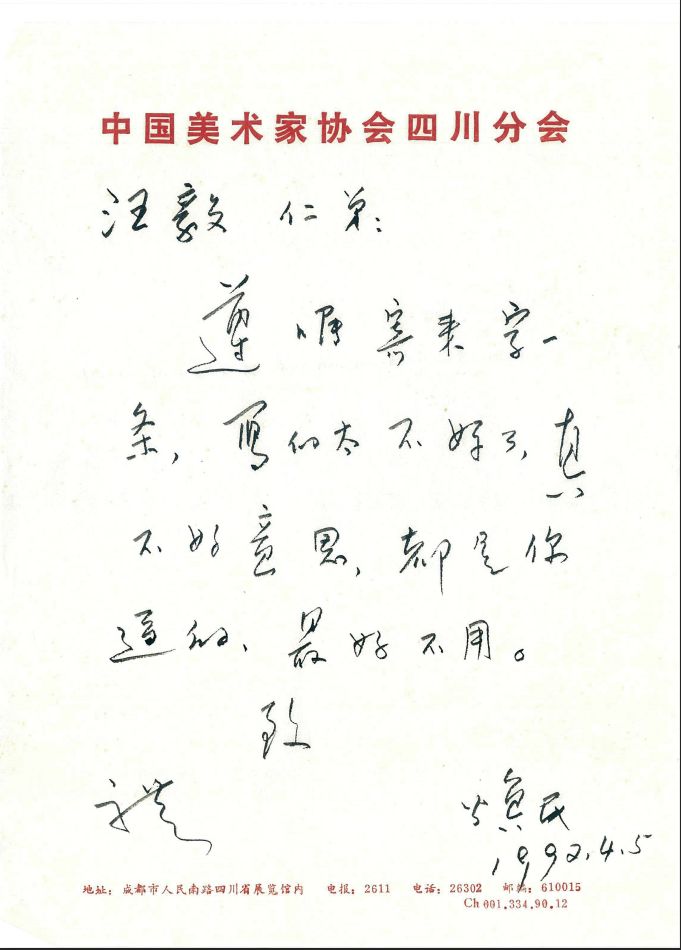 中国美术家协会四川分会
汪毅 仁弟:
遵嘱寄来字一
条,写的太不好了,真
不好意思,都是你
逼的、最好不用。
致
礼
焕民
1992.4.5
地址:成都市人民南路四川省展览馆内 电报:2611 电话:26302 邮编:610015
Ch 001.334.90.12